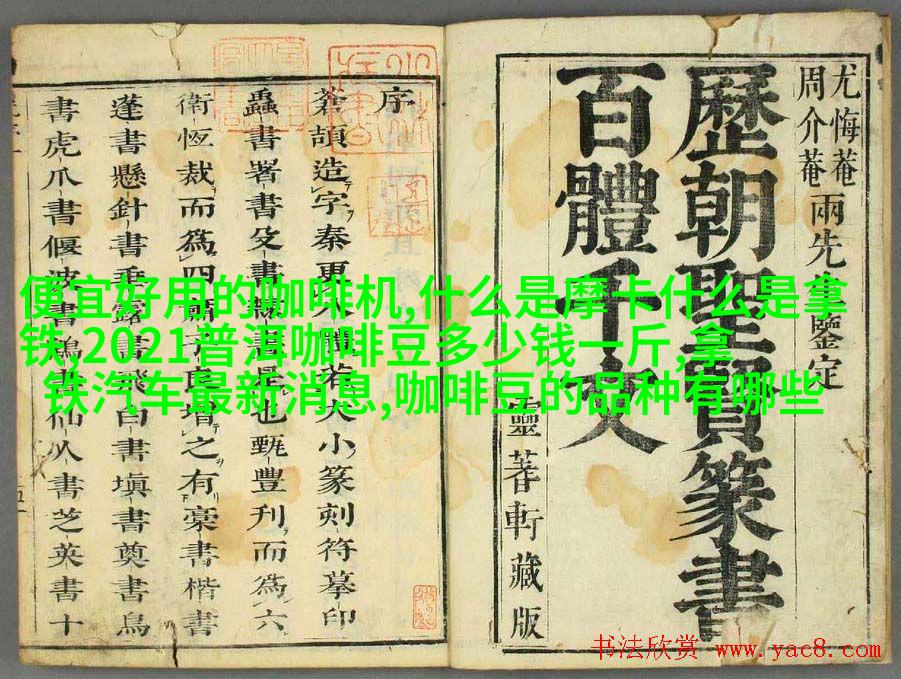 尤悔菴
周介菴
兩先生鑒定
歷朝聖賢篆書
百體千文
靈蓍軒藏版
序
蒼頡造字秦更
小篆刻符摹印
蟲書署書殳書
也甄豐刋而爲六
衛恆裁而爲四
之有豪書楷書
蓬書懸針書垂露書
白書塡書奠書鳥
書虎爪書偃波書鶴
仙人書芝英書十
便宜好用的咖啡机,什么是摩卡什么是拿
铁,2021普洱咖啡豆多少钱一斤,拿
铁汽车最新消息,咖啡豆的品种有哪些
书法欣赏 www.yac8.com